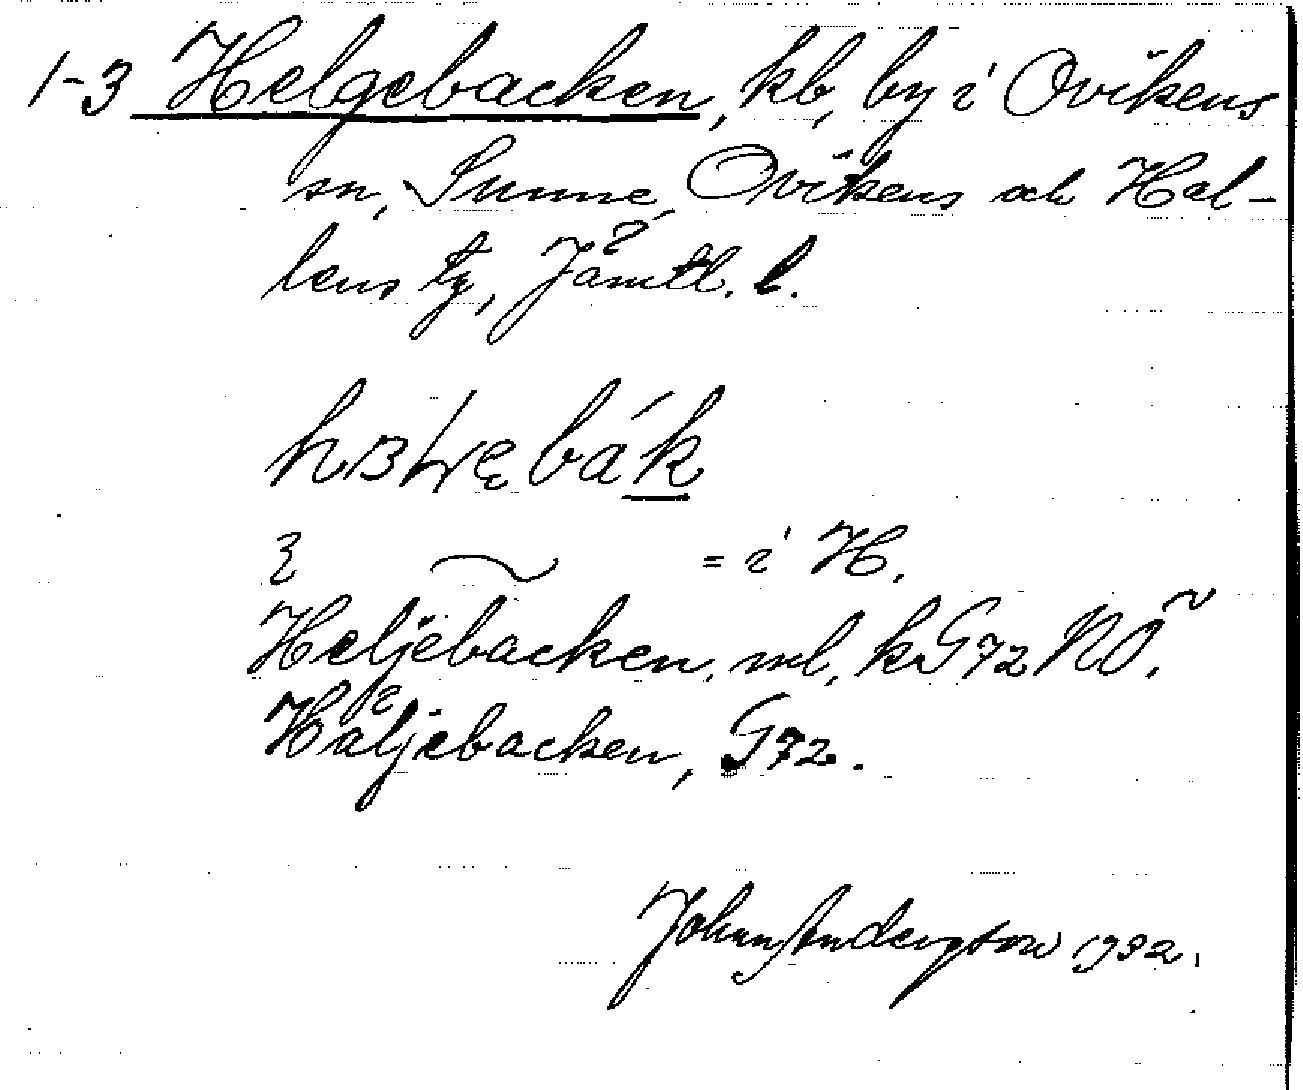 1-3 Helgebacken, kb, by i Ovikens
sn, Sunne, Ovikens och Hal-
lens tg, Jämtl. l.
bák
= i H.
Heljebacken, ml, k G72 NO.
Häljebacken, G72.
Johan Anderson 1932.